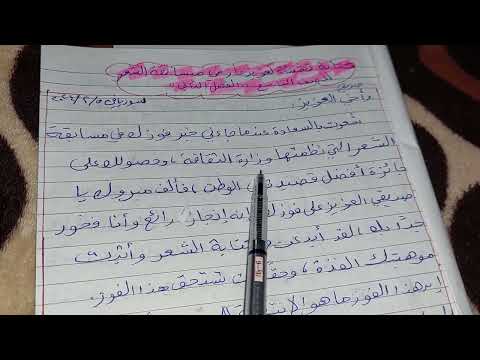 رسالة تهنئة لصديق فاز في مسابقة الشعر
الصف التاسع الفصل الثاني
سوريا في
صديقي
وأخي العزيز:
شعرت بالسعادة عندما جاءني خبر فوزك في مسابقة
الشعر التي نظمتها وزارة الثقافة، وحصولك على
جائزة أفضل قصيدة الوطن، فألف مبروك يا
صديقي العزيز على فوزك إنه إنجاز رائع وأنا فخور
جدًا بك، لقد أبدعت كتابة الشعر وأثبت
موهبتك الفذة، وحقًا تستحق هذا الفوز.
إن هذا الفوز ما هو إلا